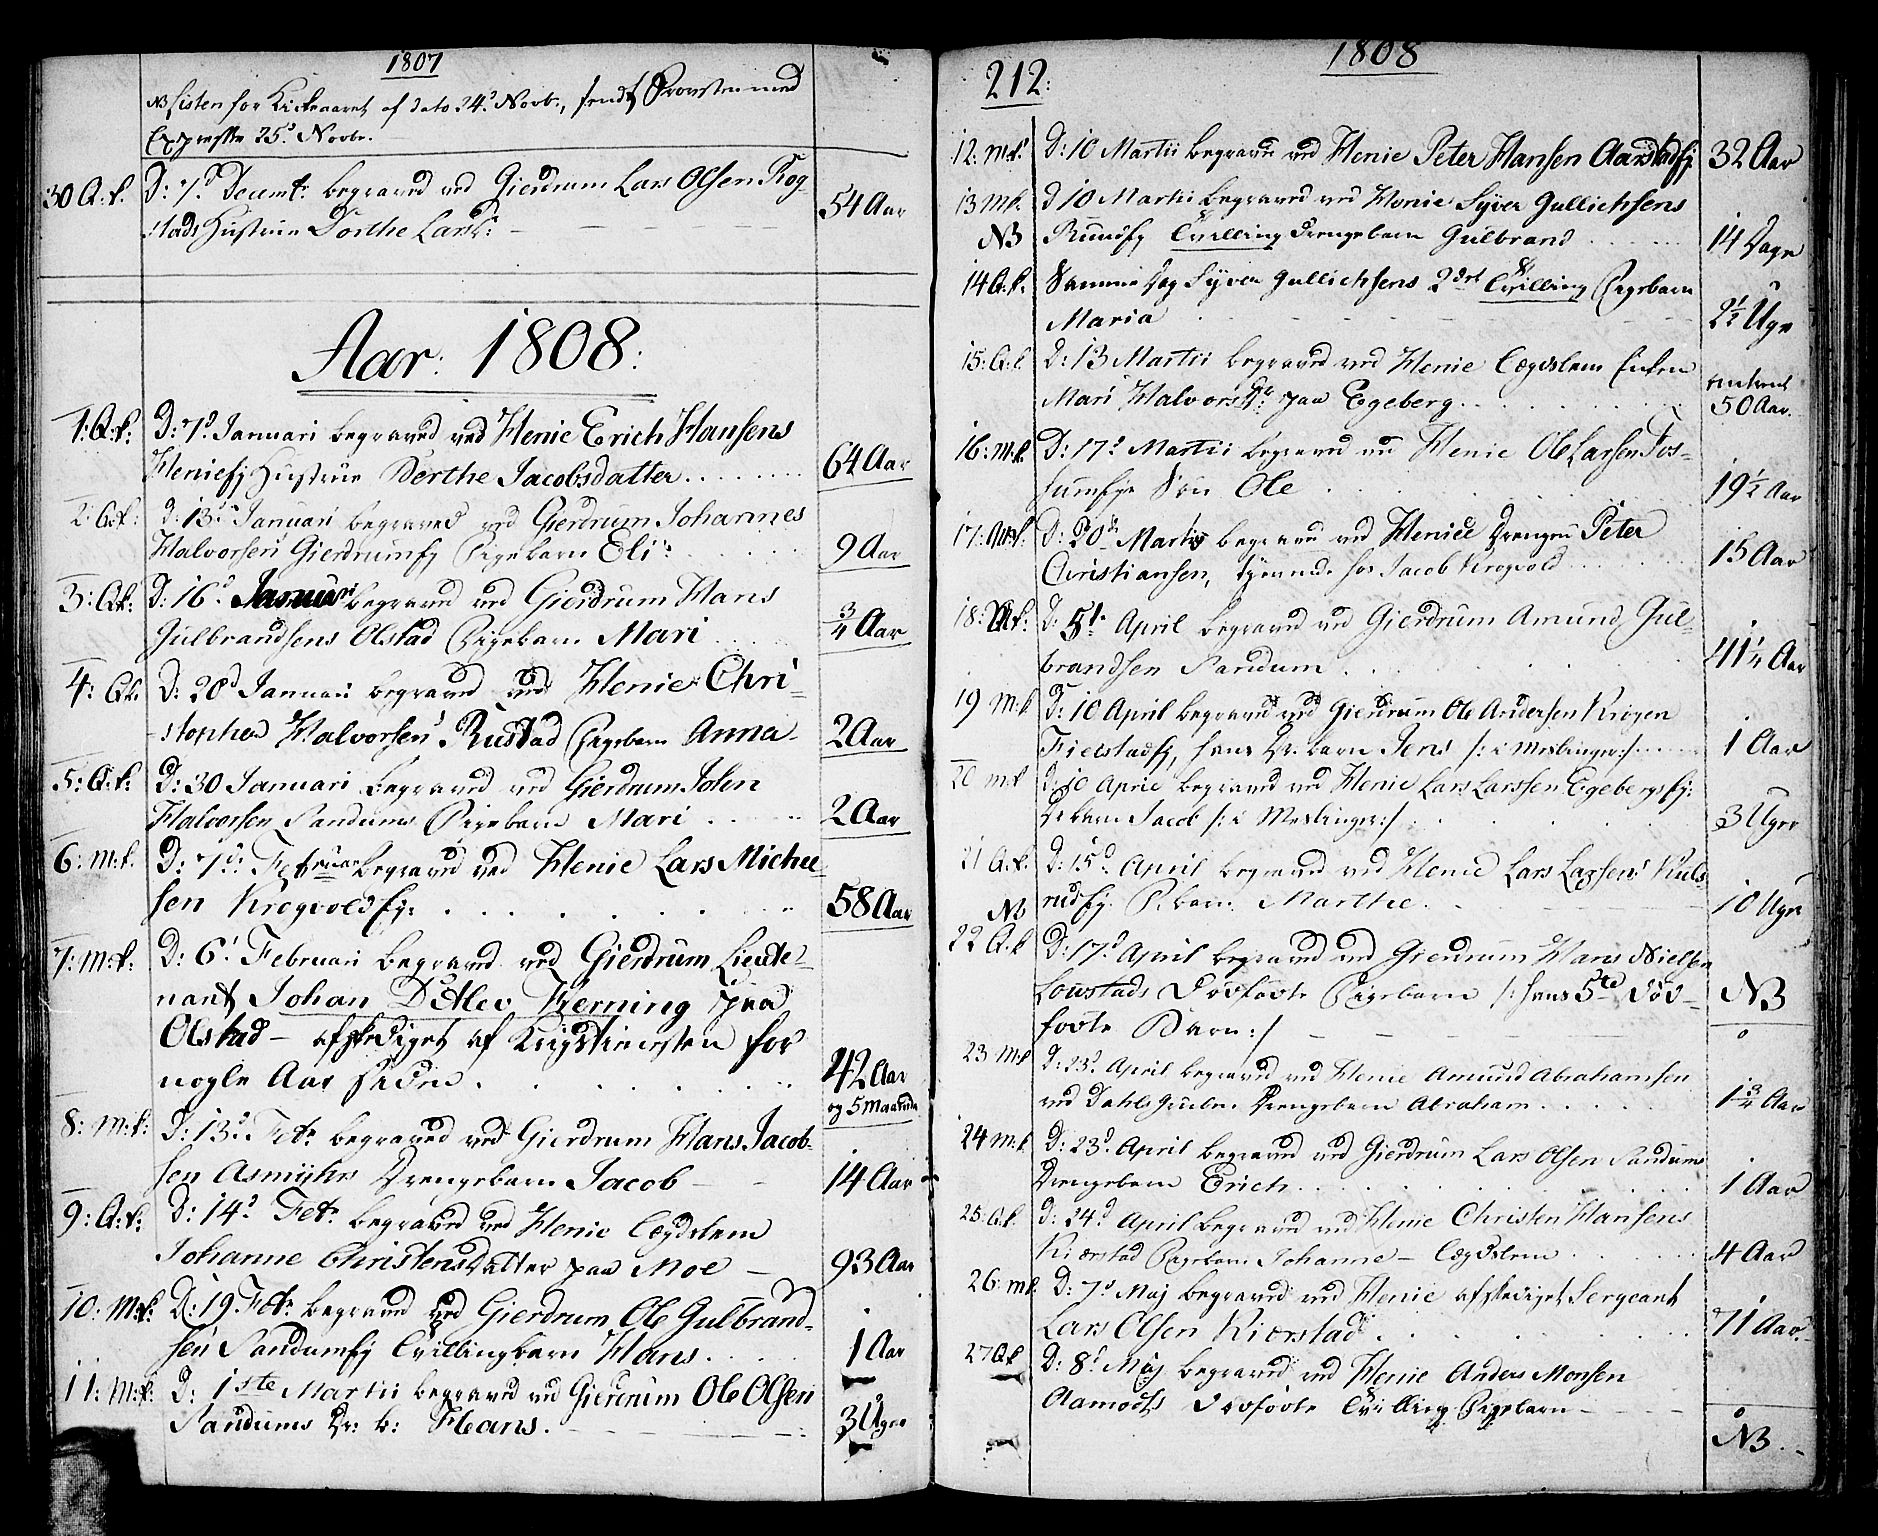 1807
NB Listen for Kirkeaaret af dato 24d Novb., sendt Provsten med
Expresse 25d Novbr.
30 Q. k. D: 7d Decembr begraved ved Gierdrum Lars Olsen Rog-
stads Hustrue Dorthe Larsd: 54 Aar
Aar: 1808:
1: Q: k: D: 7d Januari begraved ved Henie Erich Hansens
Heniefj Hustrue Berthe Jacobsdatter 64 Aar
2: Q: k: D: 13d Januari begraved ved Gierdrum Johannes
Halvorsens Gierdrumfj Pigebarn Eli 9 Aar
3: Q: k: D: 16d Januari begraved ved Gierdrum Hans
Gulbrandsens Olstad Pigebarn Mari 3/4 Aar
4: Q: k. D: 28d Januari begraved ved Henie Chri-
stopher Halvorsens Rustad Pigebarn Anna 2 Aar
5: Q: k: D: 30 Januari begraved ved Gierdrum John
Halvorsen Sandums Pigebarn Mari 2 Aar
6: M: k. D: 7d: Februar begraved ved Henie Lars Michel
sen Krogvoldfj: 58 Aar
7: M: k: D: 6d Februari begraved ved Gierdrum Lieute-
nant Johan Ditlev Herning paa
Olstad - afskediget af Krigstienesten for
nogle Aar siden 42 Aar
og 5 Maaneder
8: M: k: D: 13d Febr begraved ved Gierdrum Hans Jacob-
sen Asmyhrs Drengebarn Jacob 14 Aar
9: Q: k: D: 14d Febr begraved ved Henie Lægdslem
Johanne Christensdatter paa Moe 93 Aar
10: M: k: D: 19 Febr begraved ved Gierdrum Ole Gulbrand-
sen Sandumfj Tvillingbarn Hans 1 Aar
11: M: k: D: 1ste Martii begraved ved Gierdrum Ole Olsen
Sandums Dr: b: Hans. 3 Uger
1808
212:
12: M: k. D: 10 Martii begraven ved Henie Peter Hansen Aarstadfj 32 Aar
13 M k. D 10 Martii begraved ved Henie Syver Gullichsens
NB Rundfj Tvilling Drengebarn Gulbrand 14 Dage
14 Q: k. Samme Dag Syver Gullichsens 2det Tvilling Pigebarn
Maria 2 1/2 Uge
15: Q: k D: 13 Martii begraved ved Henie Lægdslem Enken
Mari Halvorsd: paa Egeberg omtrent
50 Aar.
16: M: k. D: 17d Martii begraved ved Henie Ole Larsen Fos-
sumfje Søn Ole 19 1/2 Aar
17: M: k. D: 20d Martii begraved ved Henie Drengen Peter
Christiansen, tienende hos Jacob Krogvold 15 Aar
18: M: k: D: 5te April begraved ved Gierdrum Amund Gul-
brandsen Sandum 41 1/4 Aar
19 M: k D: 10 April begraved ved Gierdrum Ole Andersen Krogen
Fielstadfj, hans Dr. barn Jens /: i Meslinger :/ 1 Aar
20 m: k D: 10 April begraved ved Henie Lars Larssen Egebergsfj:
Dr barn Jacob /: i Meslinger :/ 3 Uger
21 Q: k. D: 15d April begraved ved Henie Lars Larsens Kuls
NB rudfj. P. barn Marthe 10 Uger
22 Q: k D: 17d April begraved ved Gierdrum Hans Nielsen
Lowstads Dødfødte Pigebarn /: hans 5te Død- NB
fødte Barn :/ 0
23 M: k D: 23d April begraved ved Henie Amund Abrahamsen
ved Dahls Drengebarn Abraham 1 3/4 Aar
24 M: k D: 23d April begraved ved Gierdrum Lars Olsen Sandums
Drengebarn Erich 1 Aar
25: Q: k. D: 24d April begraved ved Henie Christen Hansens
Kiærstad Pigebarn Johanne - Lægdslem 4 Aar
26: M: k. D: 7d Maj begraved ved Henie afskediget Sergeant
Lars Olsen Kierstad 71 Aar
27 Q k D: 8d Maj begraved ved Henie Anders Monsen
Aamodts Dødfødte Tvilling Pigebarn NB